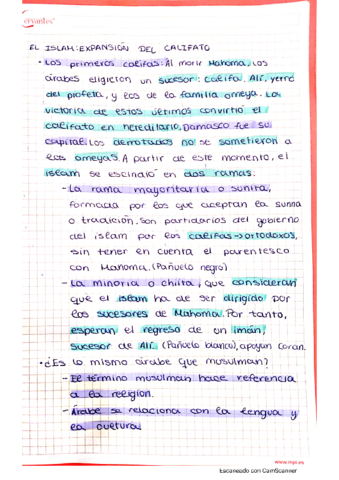 cervantes
EL ISLAM: EXPANSIÓN DEL CALIFATO
• Los primeros califas: Al morir Mahoma, los
árabes eligieron un sucesor: califa. Alí, yerno
del profeta, y los de la familia omeya. La
victoria de estos últimos convirtió el
califato en hereditario, Damasco fue su
capital. Los derrotados no se sometieron a
los omeyas. A partir de este momento, el
islam se escindió en dos ramas:
- La rama mayoritaria o sunita,
formada por los que aceptan la sunna
o tradición. Son partidarios del gobierno
del islam por los califas → ortodoxos,
sin tener en cuenta el parentesco
con Mahoma. (Pañuelo negro)
- La minoría o chiita, que consideran
que el islam ha de ser dirigido por
los sucesores de Mahoma. Por tanto,
esperan el regreso de un imán,
sucesor de Alí. (Pañuelo blanco), apoyan Corán.
• ¿Es lo mismo árabe que musulmán?
- El término musulmán hace referencia
a la religión.
- Árabe se relaciona con la lengua y
la cultura
Escaneado con CamScanner